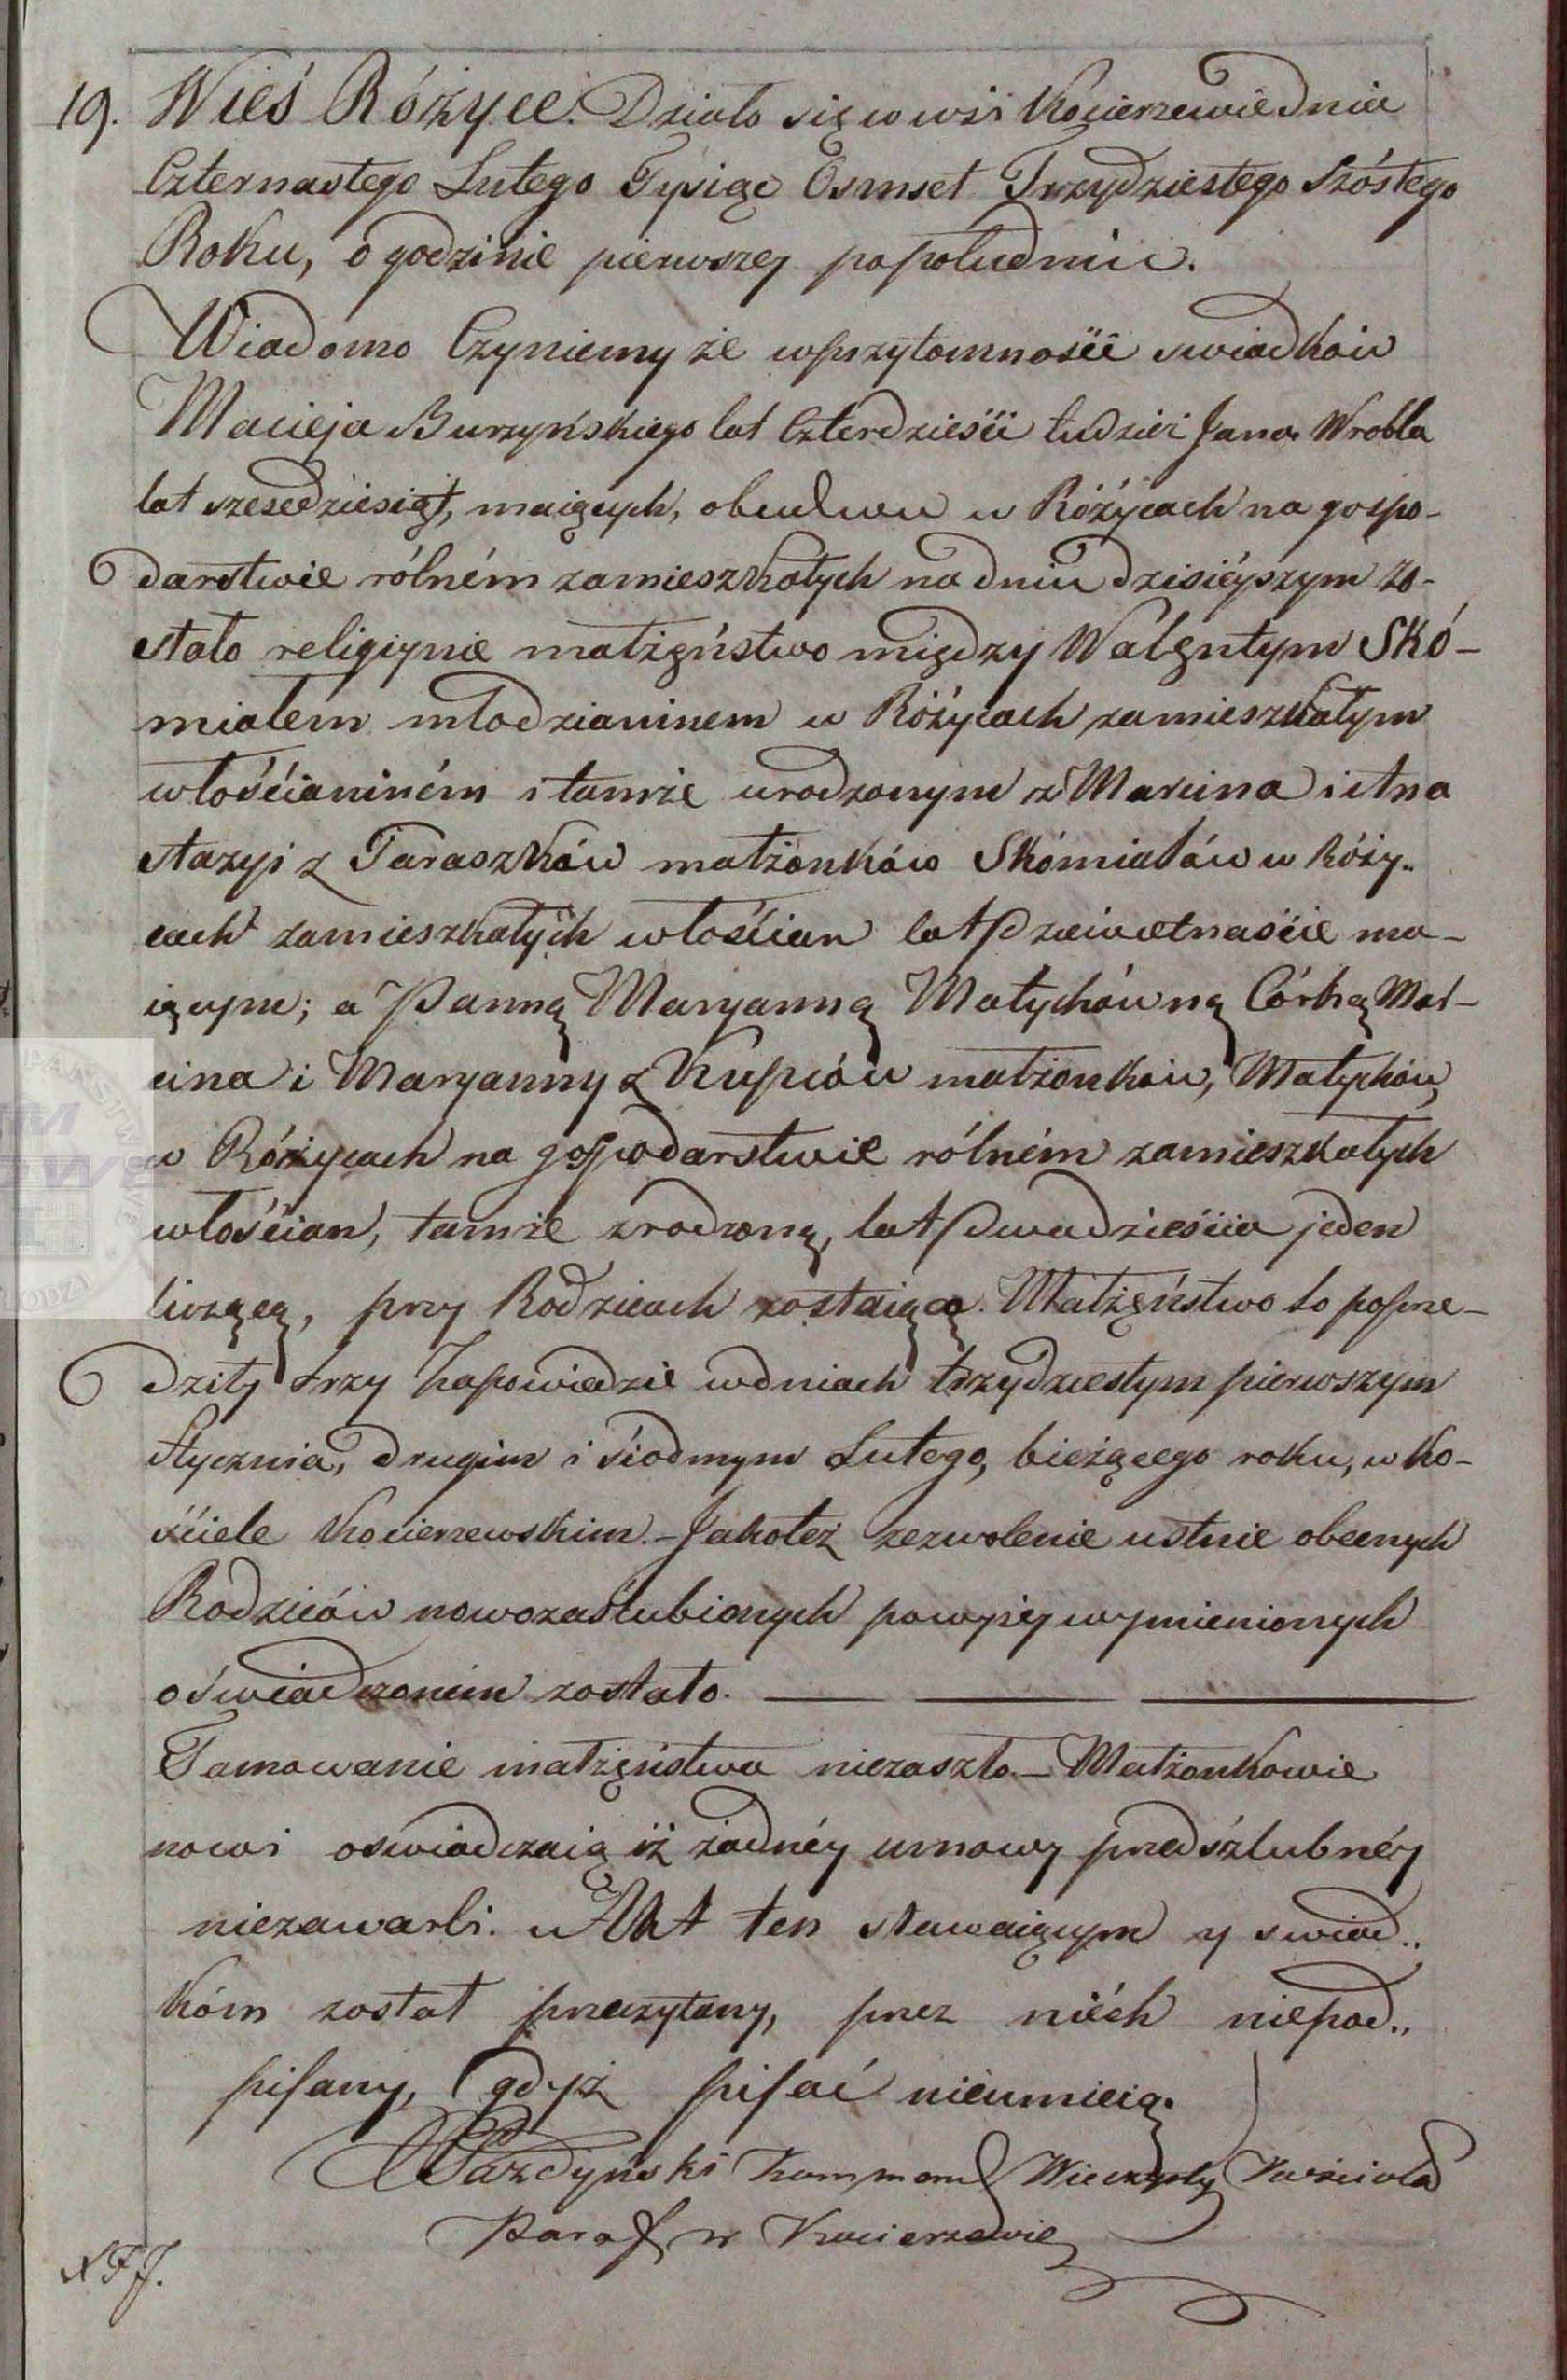 19. Wieś Różyce. Działo się w wsi Kocierzewie dnia
Czternastego Lutego Tysiąc Osmset Trzydziestego Szóstego
Roku, o godzinie pierwszej popołudniu.
Wiadomo Czyniemy że wprzytomności swiadków
Macieja Burzyńskiego lat Czterdzieści tudzież Jana Wrobla
lat szescdziesiąt, maiących, obudwu w Różycach na gospo-
darstwie rólném zamieszkałych na dniu dzisiéyszym zo-
stało religiynie małżęństwo między Walęntym Skó-
miałem młodzianinem w Różycach zamieszkałym
włościaniném i tamże urodzonym z Marcina i Ana
stazyi z Taraszków małżonków Skómiałów w Róży..
cach zamieszkałych włościan lat dziewiętnaście ma-
iącym; a Panną Maryanną Małychówną Córką Mar-
cina i Maryanny z Kupców małżonków, Małychów,
w Różycach na gospodarstwie rólném zamieszkałych
włościan, tamże zrodzoną, lat dwadzieścia jeden
liczącą, przy Rodzicach zostaiącą. Małżęństwo to poprze-
dziły trzy Zapowiedzie wdniach trzydziestym pierwszym
Stycznia, drugim i siodmym Lutego, bieżącego roku, w Ko-
ściele Kocierzewskim.- Jakoteż zezwolenie ustnie obecnych
Rodziców nowozaślubionych powyżej wymienionych
oświadczoném zostało.
Tamowanie małżęństwa niezaszło.- Małżonkowie
nowi oswiadczaią iż żadnéy umowy predszlubnéy
niezawarli. Akt ten stawaiącym y swiad..
kóm został przeczytany, przez niéch niepod..
pisany, gdyż pisać nieumieią.
Pazdyński Kommend Wieczysty Kościoła
Paraf w Kocierzewie